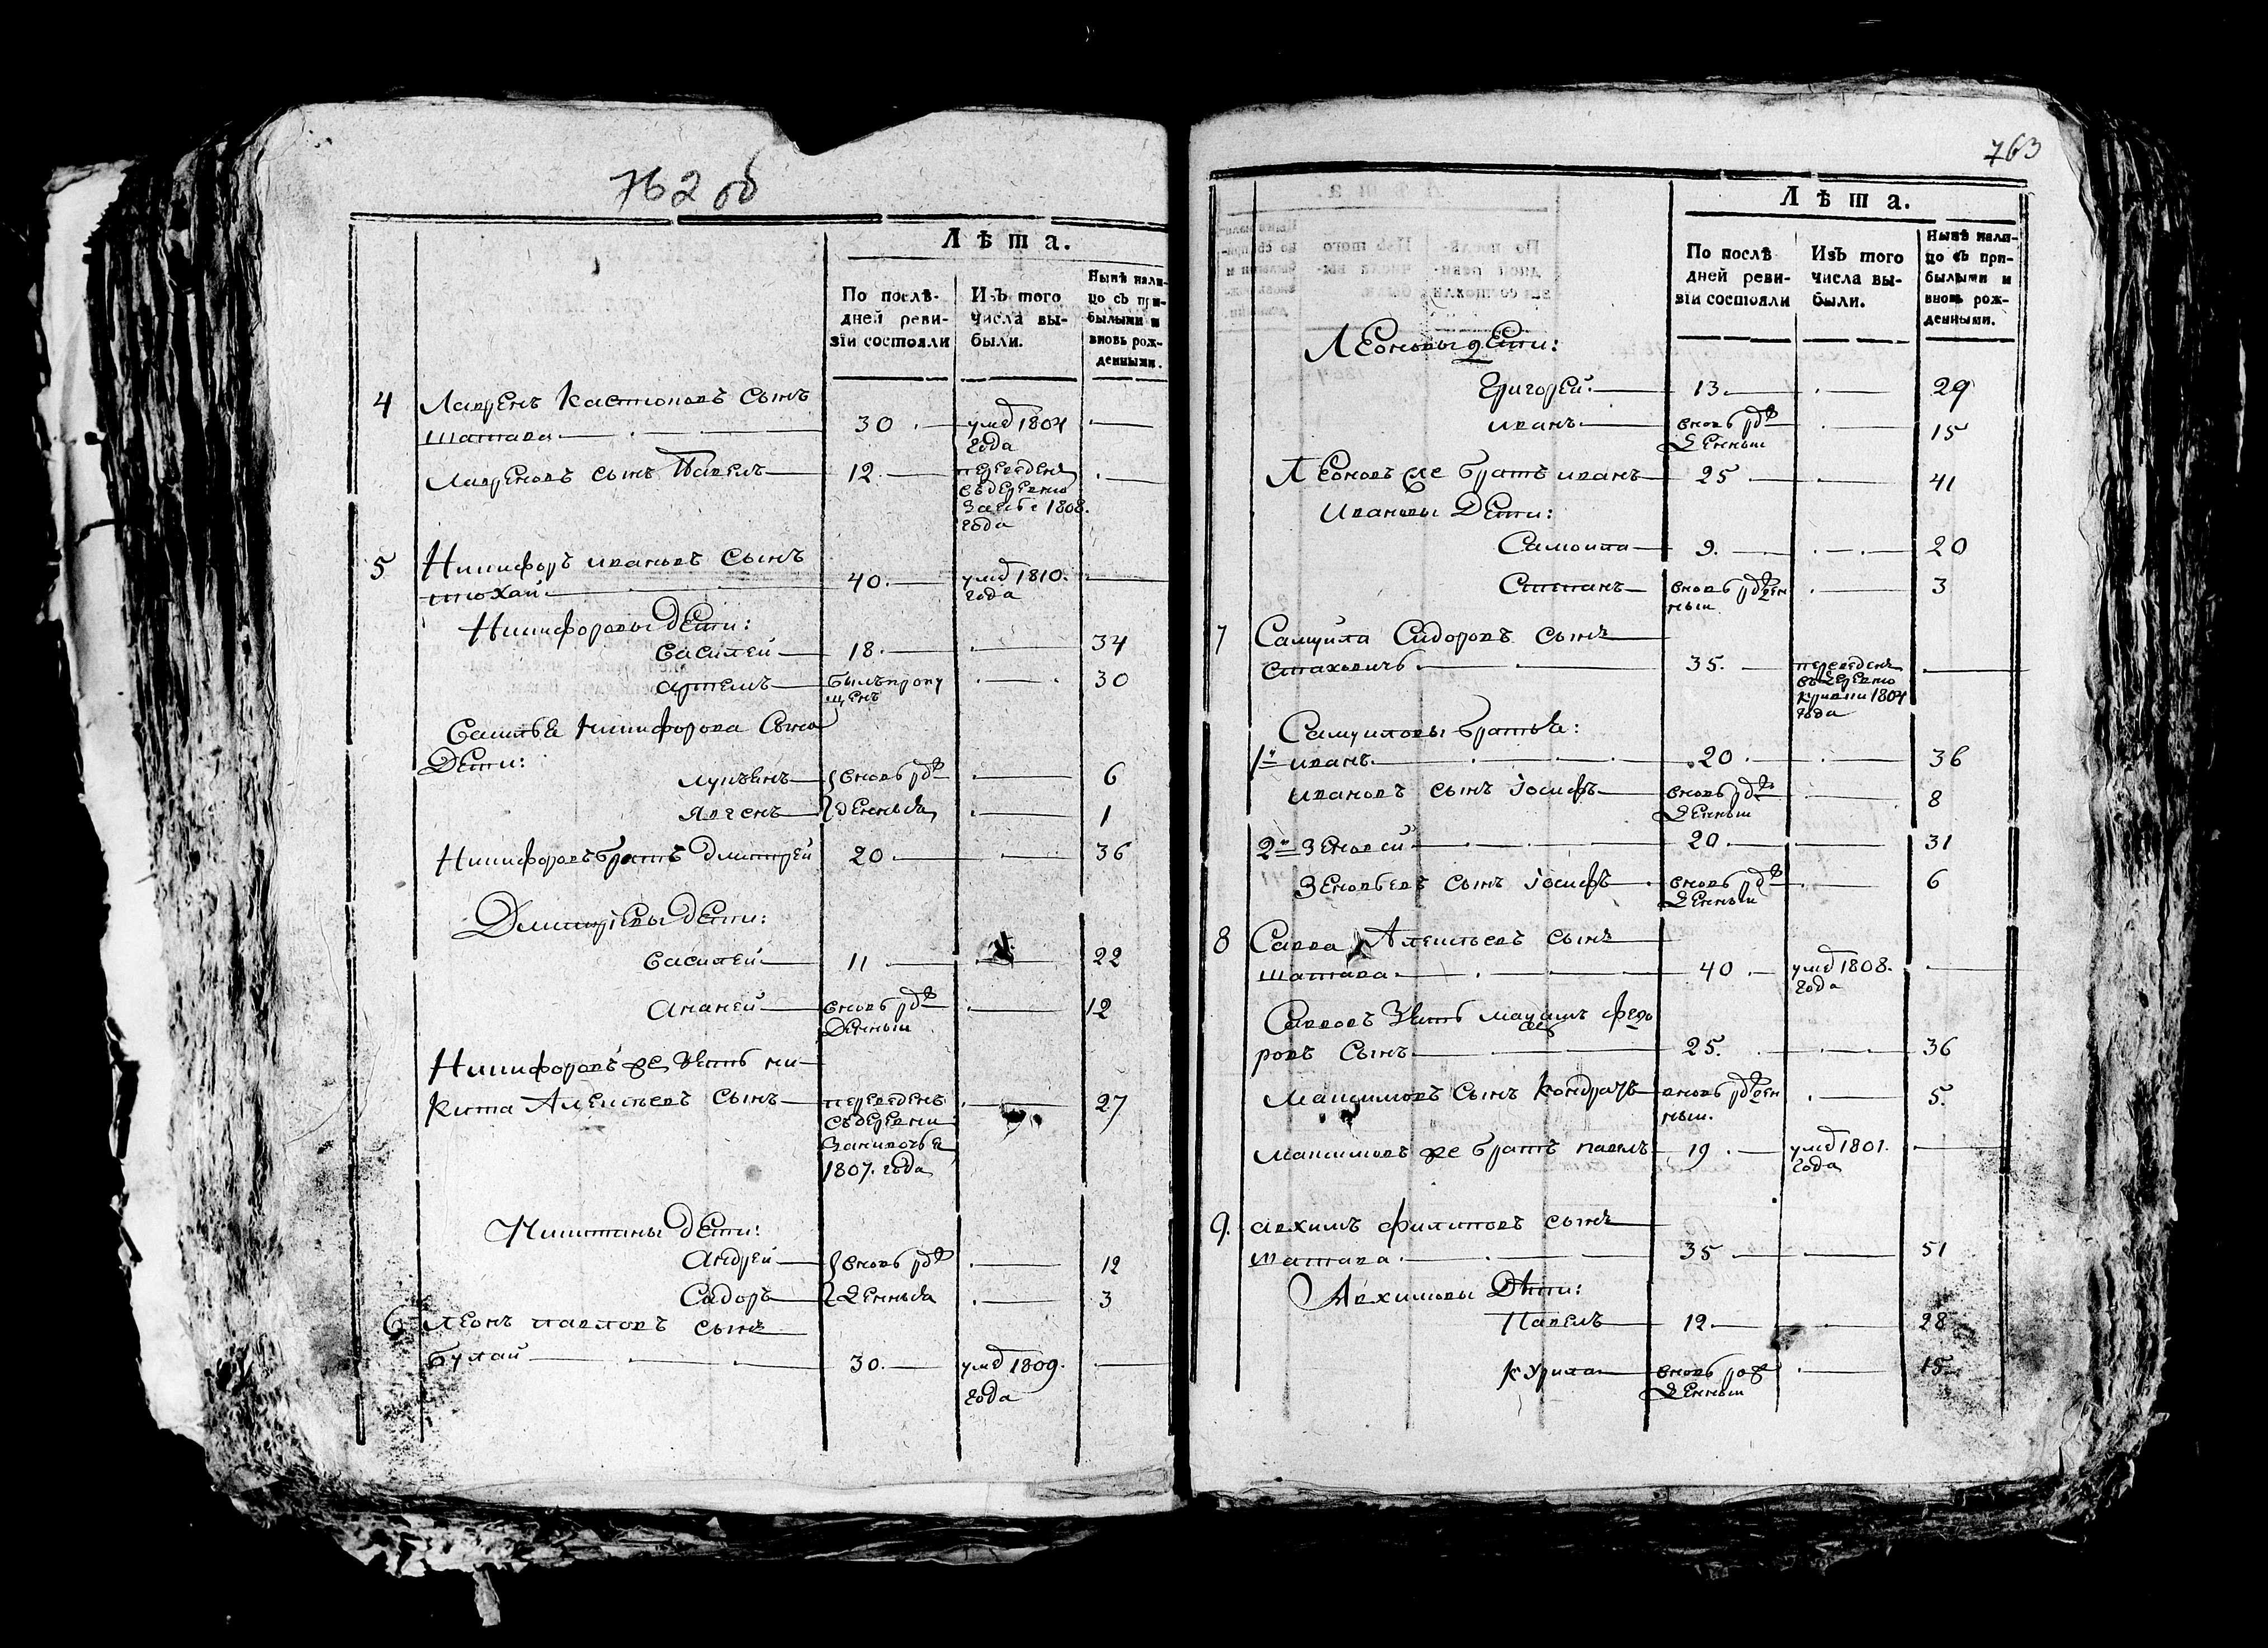 762 об
Лѣта.
По послѣдней ревизіи состояли
Изъ того числа выбыли.
Нынѣ налицо съ прибылыми и вновь рожденными.
4 Лавренъ Кастюковъ сынъ
Шатава 30 умѣ 1804
года
Лавреновъ сынъ Павелъ 12 переведенъ
въ деревню
1808.
года
5 Никифоръ ивановъ сынъ
тюхай 40. умѣ 1810.
года
Никифоровы дети:
Василей 18. 34
Артемъ былъ пропу 30
щенъ
Василья Никифорова сына
Дети:
Лукьянъ вновь рож 6
денныя 1
Никифоровъ братъ дмитрей 20 36
Дмитріевы дети:
Василей 11 22
Ананей вновь рож 12
Денный
Никифоровъ же зять ни
кита Алексѣевъ сынъ переведенъ 27
съ деревни
1807. года
Никитины дети:
Андрей вновь рож 12
Садоръ денныя 3
6 Леонъ павловъ сынъ
Булай 30. умѣ 1809.
года
763
Лѣта.
По послѣдней ревизіи состояли
Изъ того числа выбыли.
Нынѣ налицо съ прибылыми и вновь рожденными.
Леоновы дети:
Григорей 13. 29
иванъ вновь рож 15
денный
Леоновъ же братъ иванъ 25 41
Ивановы Дети:
Самойла 9. 20
Степанъ вновь рожден 3
ный
7 Самуйла Сидоровъ сынъ
Стаховичъ 35. переведенъ
въ деревню
1804
года
Самуиловы братья:
1й иванъ 20 36
ивановъ сынъ іосифъ вновь рож 8
денный
2й Зеновей 20 31
Зеновьевъ сынъ іосифъ вновь рож 6
денный
8 Савва Алексѣевъ сынъ
Шатава 40 умѣ 1808.
года
Саввовъ Зять Максимъ федо
ровъ сынъ 25. 36
Максимовъ сынъ Кондратъ вновь рожден 5.
ный.
Максимовъ же братъ павелъ 19 умѣ 1801.
года
9. авхимъ филиповъ сынъ
Шатава 35 51
Авхимовы Дѣти:
Павелъ 12. 28
Курила вновь рож 15
денный